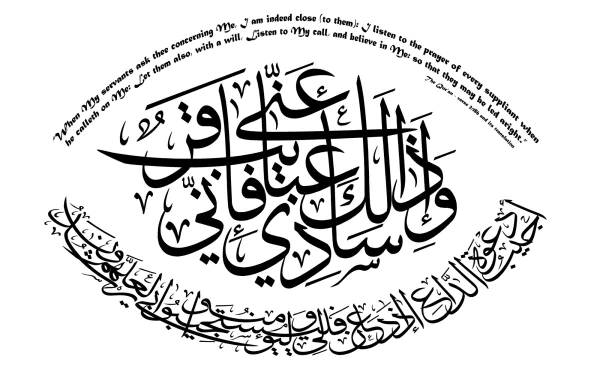 "When My servants ask thee concerning Me, I am indeed close (to them); I listen to the prayer of every suppliant when
he calleth on Me; Let them also, with a will, Listen to My call, and believe in Me; so that they may be led aright."
The Qur'an - verse 2:186 and its translation
وَإِذَا سَأَلَكَ عِبَادِي عَنِّي فَإِنِّي قَرِيبٌ
أُجِيبُ دَعْوَةَ الدَّاعِ إِذَا دَعَانِ فَلْيَسْتَجِيبُوا لِي وَلْيُؤْمِنُوا بِي لَعَلَّهُمْ يَرْشُدُونَ